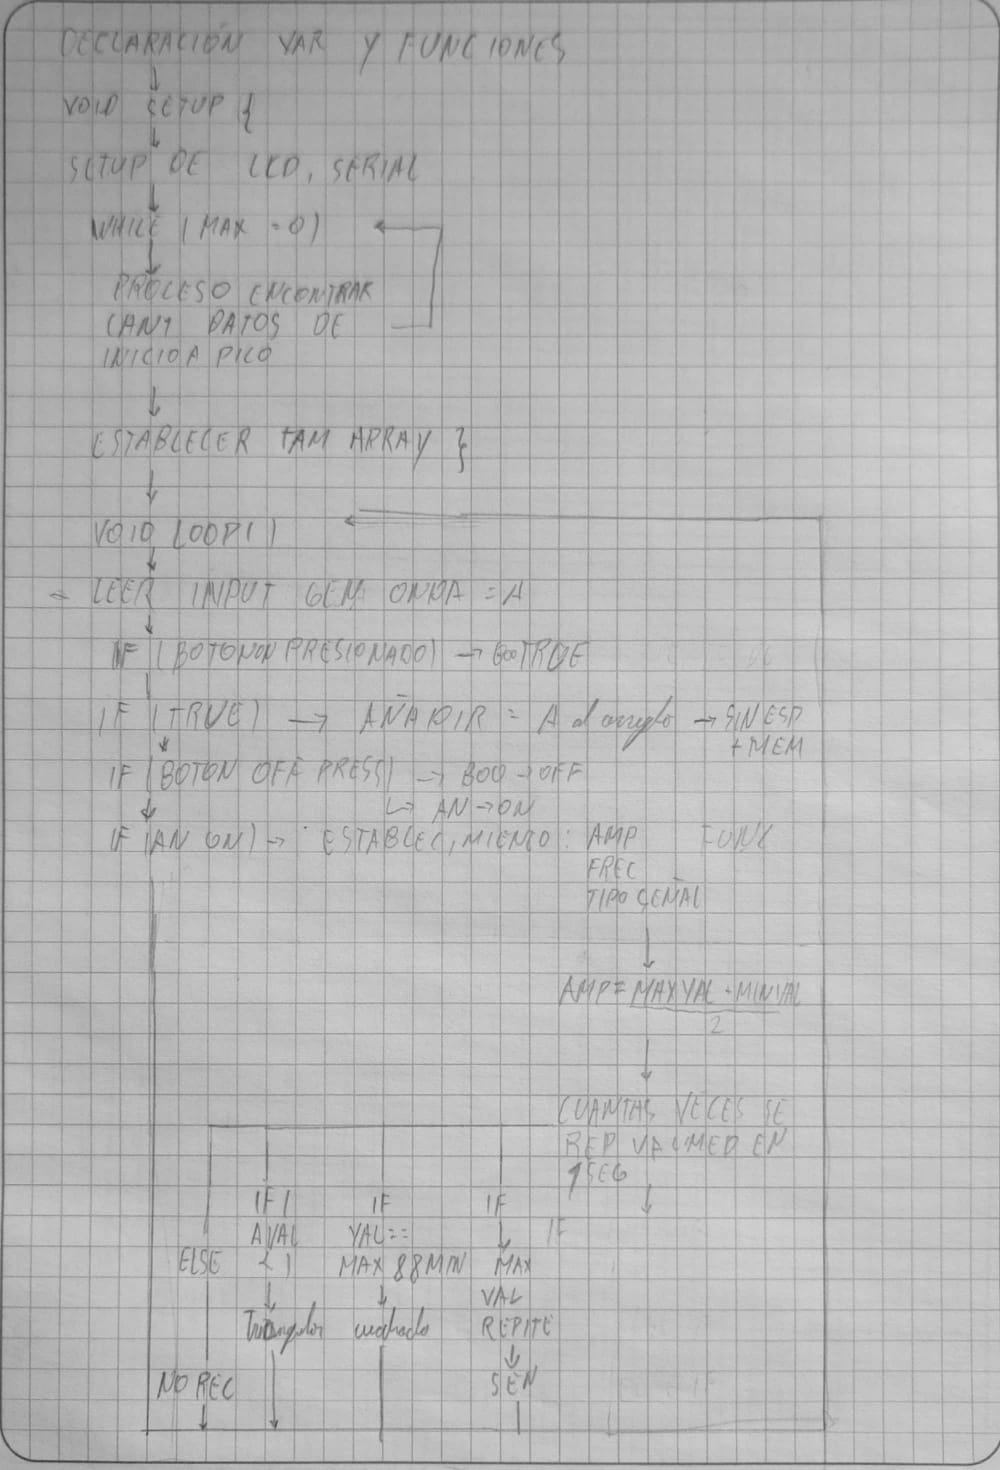 DECLARACIÓN VAR Y FUNCIONES
VOID SETUP {
SETUP DE LCD, SERIAL
WHILE (MAX = 0)
PROCESO ENCONTRAR
CANT DATOS DE
INICIO A PICO
ESTABLECER TAM ARRAY }
VOID LOOP()
- LEER INPUT GEN ONDA = A
IF (BOTON ON PRESIONADO) → BOO TRUE
IF (TRUE) → AÑADIR = A al arreglo → SIN ESP
+ MEM
IF (BOTON OFF PRESS) → BOO → OFF
↳ AN → ON
IF (AN ON) → ESTABLECIMIENTO: AMP FUNC
FREC
TIPO SEÑAL
AMP = MAXVAL - MINVAL
2
CUANTAS VECES SE
REP VALMED EN
1SEG
IF ( IF IF
AVAL VAL== IF
ELSE < ) MAX && MIN MAX
VAL
Triangular cuadrado REPITE
NO REC SEN